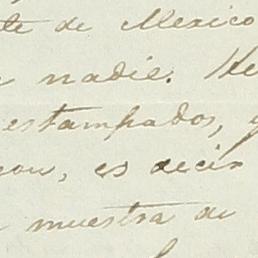 te de Mexico
nadie. He
estampados, y
con, es decir
muestra de